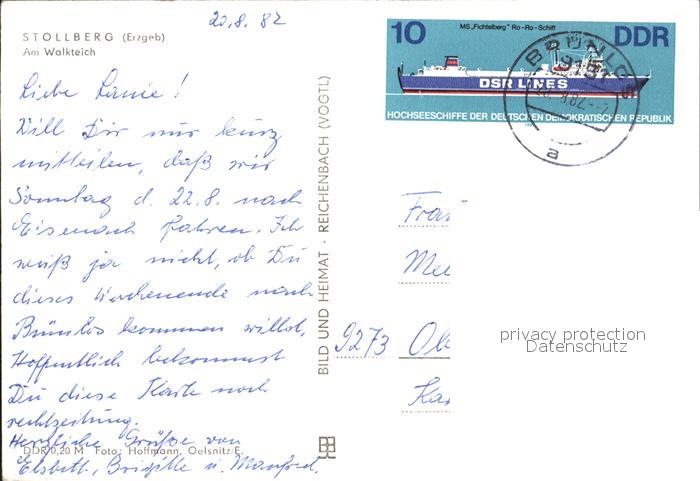 20.8.82
STOLLBERG (Erzgeb)
Am Walkteich
Liebe !
Will Dir nur kurz
mitteilen, daß wir
Sonntag d. 22.8. nach
Eisenach fahren. Ich
weiß ja nicht, ob Du
dieses Wochenende nach
Brünlos kommen willst,
Hoffentlich bekommst
Du diese Karte noch
rechtzeitig.
Herzliche Grüße von
Elsbeth, Brigitte u. Manfred.
DDR 0,20 M Foto: Hoffmann, Oelsnitz/E.
BILD UND HEIMAT · REICHENBACH (VOGTL)
MS „Fichtelberg" Ro-Ro-Schiff
10 DDR
DSR LINES
HOCHSEESCHIFFE DER DEUTSCHEN DEMOKRATISCHEN REPUBLIK
BRÜNLOS
a
Frau
9273
privacy protection
Datenschutz